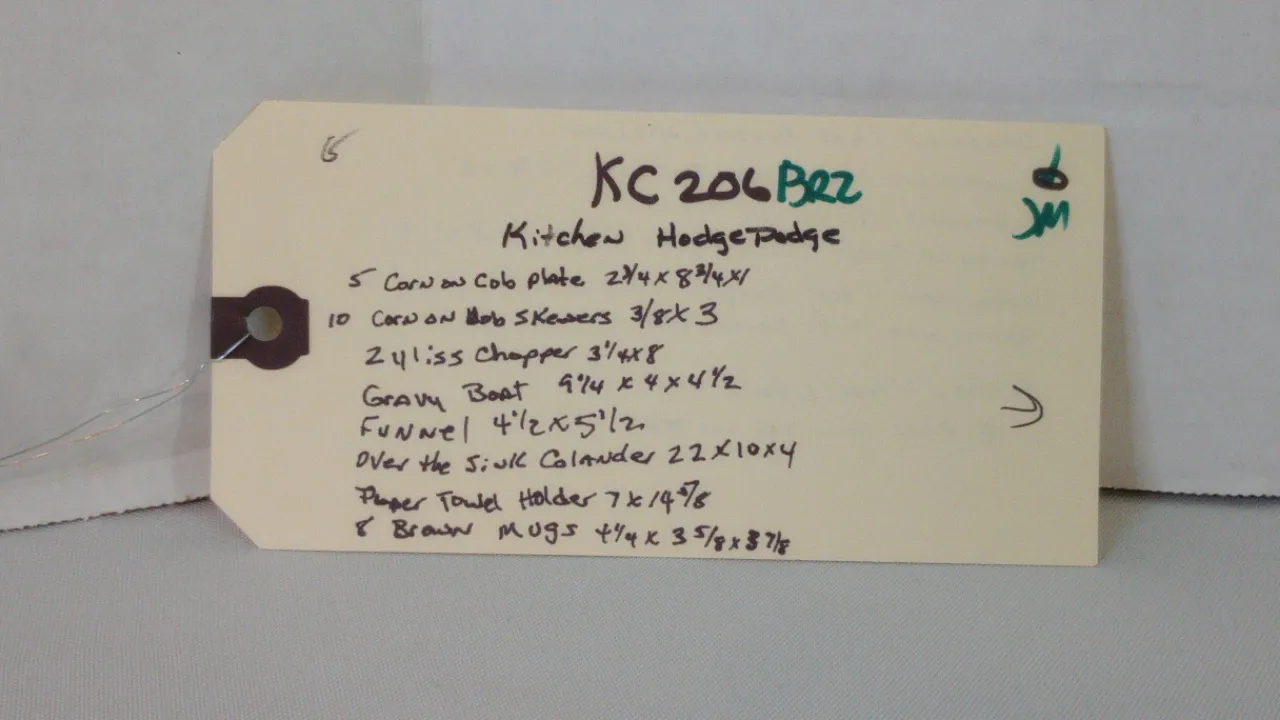 KC 206 BRZ
JM
Kitchen HodgePodge
5 Corn on Cob Plate 2 3/4 x 8 3/4 x 1
10 Corn on Cob Skewers 3/8 x 3
Zyliss Chopper 3 1/4 x 8
Gravy Boat 9 1/4 x 4 x 4 1/2
Funnel 4 1/2 x 5 1/2
Over the Sink Colander 22 x 10 x 4
Paper Towel Holder 7 x
8 Brown Mugs 4 1/4 x 3 5/8 x 3 7/8